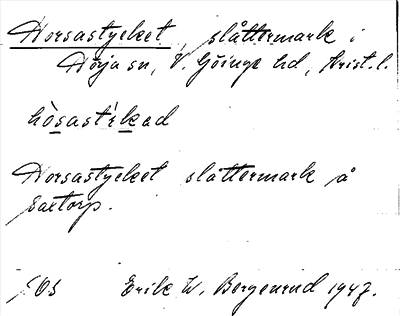 Horsastycket, slåttermark i
Hörja sn, V. Göinge hd, Krist. l.
hòsast'ƙkad
Horsastycket slåttermark på
Saxtorp.
SOS Erik W. Bergenrud 1947.